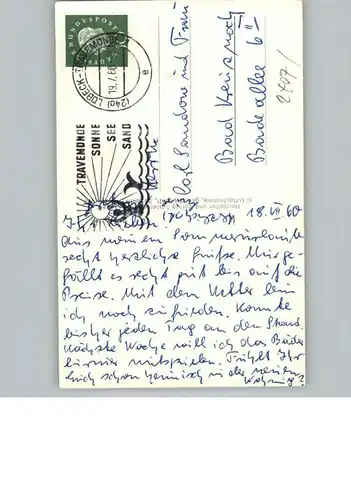 DEUTSCHE BUNDESPOST
(24a) LÜBECK-TRAVEMÜNDE
19.7.60
e
TRAVEMÜNDE
SONNE
SEE
SAND
Carl Sandow und Frau
Bad Kreuznach
Badeallee 6
2407/
18. VII 60
Aus meinem Sommerurlaub
recht herzliche Grüße. Mir ge-
fällt es recht gut bis auf die
Preise. Mit dem Wetter bin
ich noch zufrieden. Konnte
bisher jeden Tag an den Strand.
Nächste Woche will ich das
turnier mitspielen. Fühlt Ihr
Euch schon heimisch in der neuen
Wohnung?